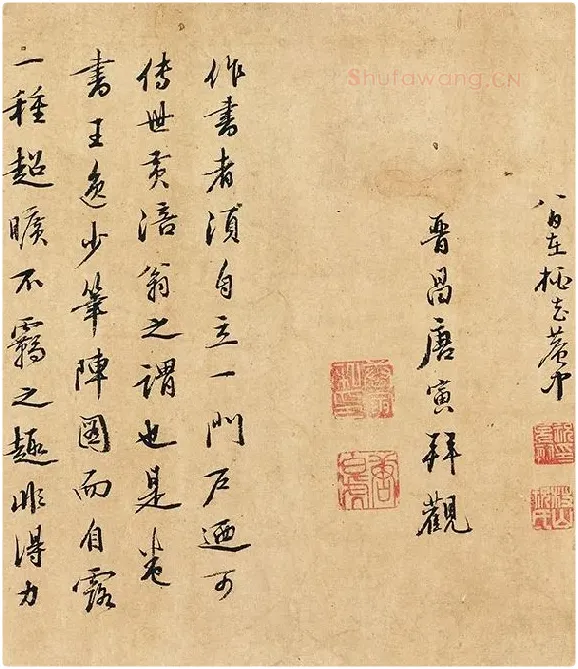 Shufawang.CN
八月在
晋昌唐寅拜觀
作書者須自立一門戶廼可
傳世黄涪翁之謂也是卷
書王逸少筆陣圖而自露
一種超曠不羈之趣非得力